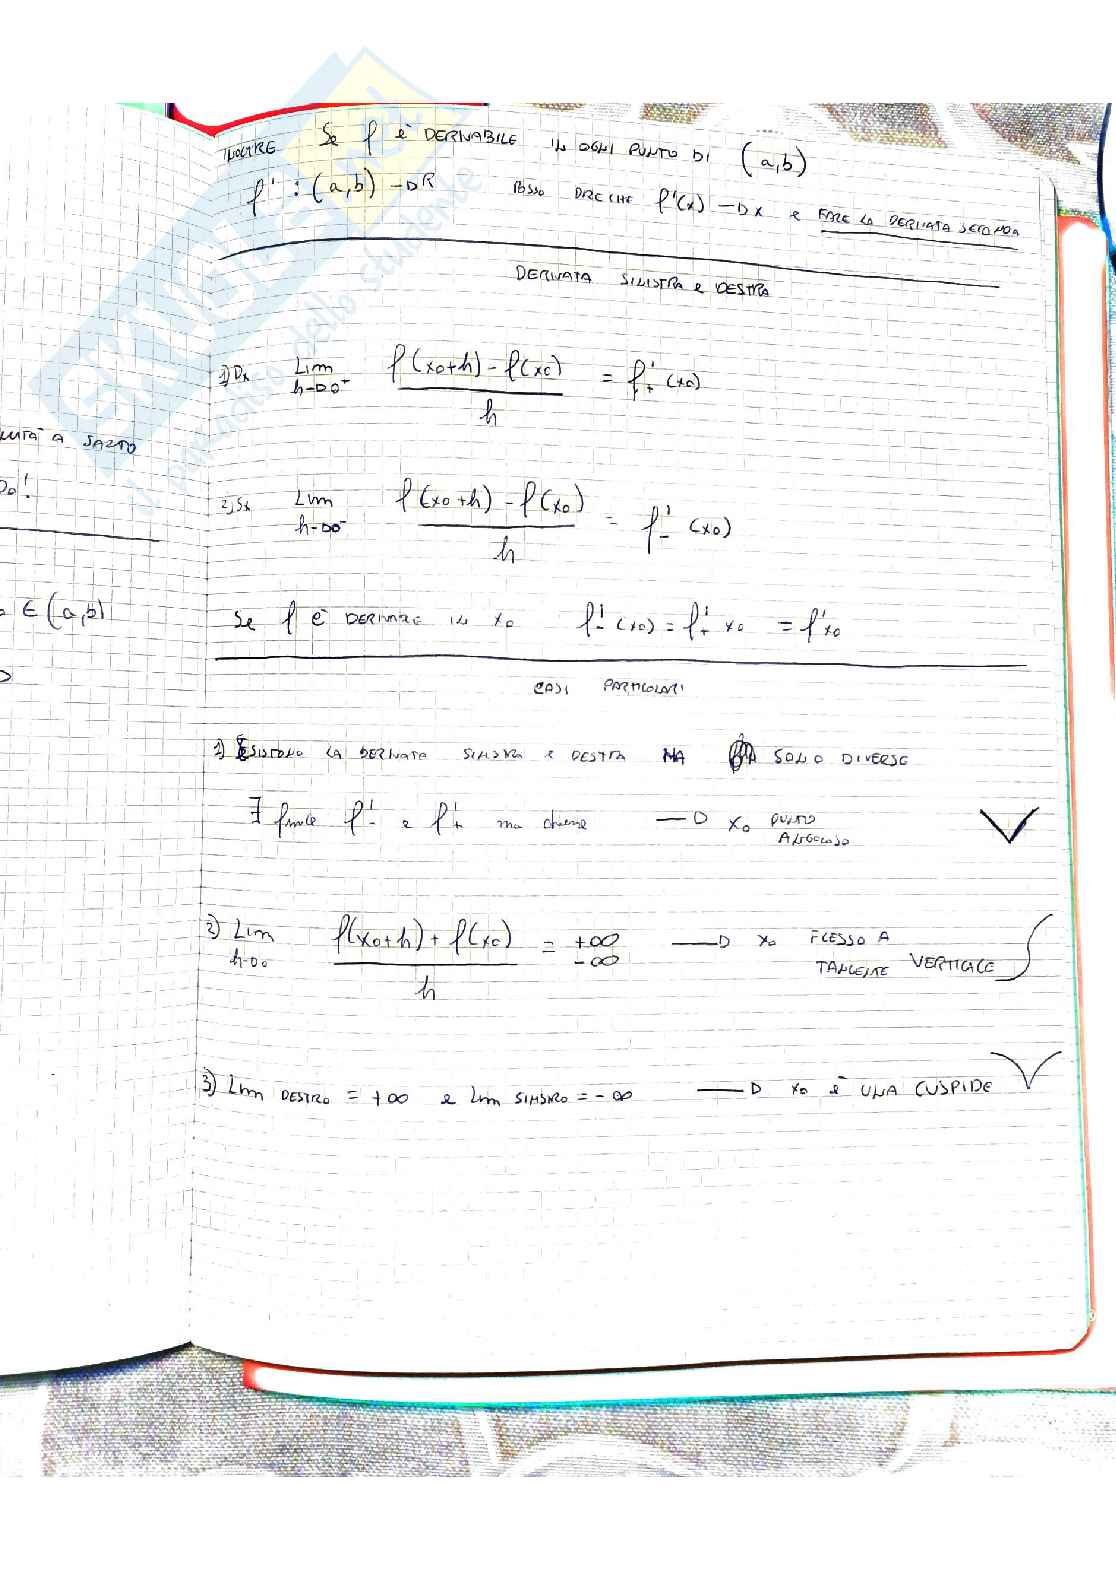 INOLTRE Se f è DERIVABILE IN OGNI PUNTO DI (a,b)
f' : (a,b) → R POSSO DIRE CHE f'(x) → x e FARE LA DERIVATA SECONDA
DERIVATA SINISTRA e DESTRA
1) Dx Lim h→0⁺ f(x0+h) - f(x0) / h = f'₊ (x0)
2) Sx Lim h→0⁻ f(x0+h) - f(x0) / h = f'₋ (x0)
Se f è IN x0 f'₋ (x0) = f'₊ x0 = f'x0
CASI PARTICOLARI
1) ESISTONO LA DERIVATA SINISTRA e DESTRA MA SONO DIVERSE
∃ finite f'₋ e f'₊ ma diverse → x0 PUNTO
ANGOLOSO
2) Lim h→0 f(x0+h) + f(x0) / h = +∞ -∞ → x0 FLESSO A
TANGENTE VERTICALE
3) Lim DESTRO = +∞ e Lim SINISTRO = -∞ → x0 è UNA CUSPIDE
A SALTO
∈ (a,b)
skuola.net
il paradiso dello studente